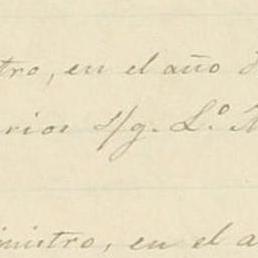 tro, en el año
rios s/g. L.º
inistro, en el a